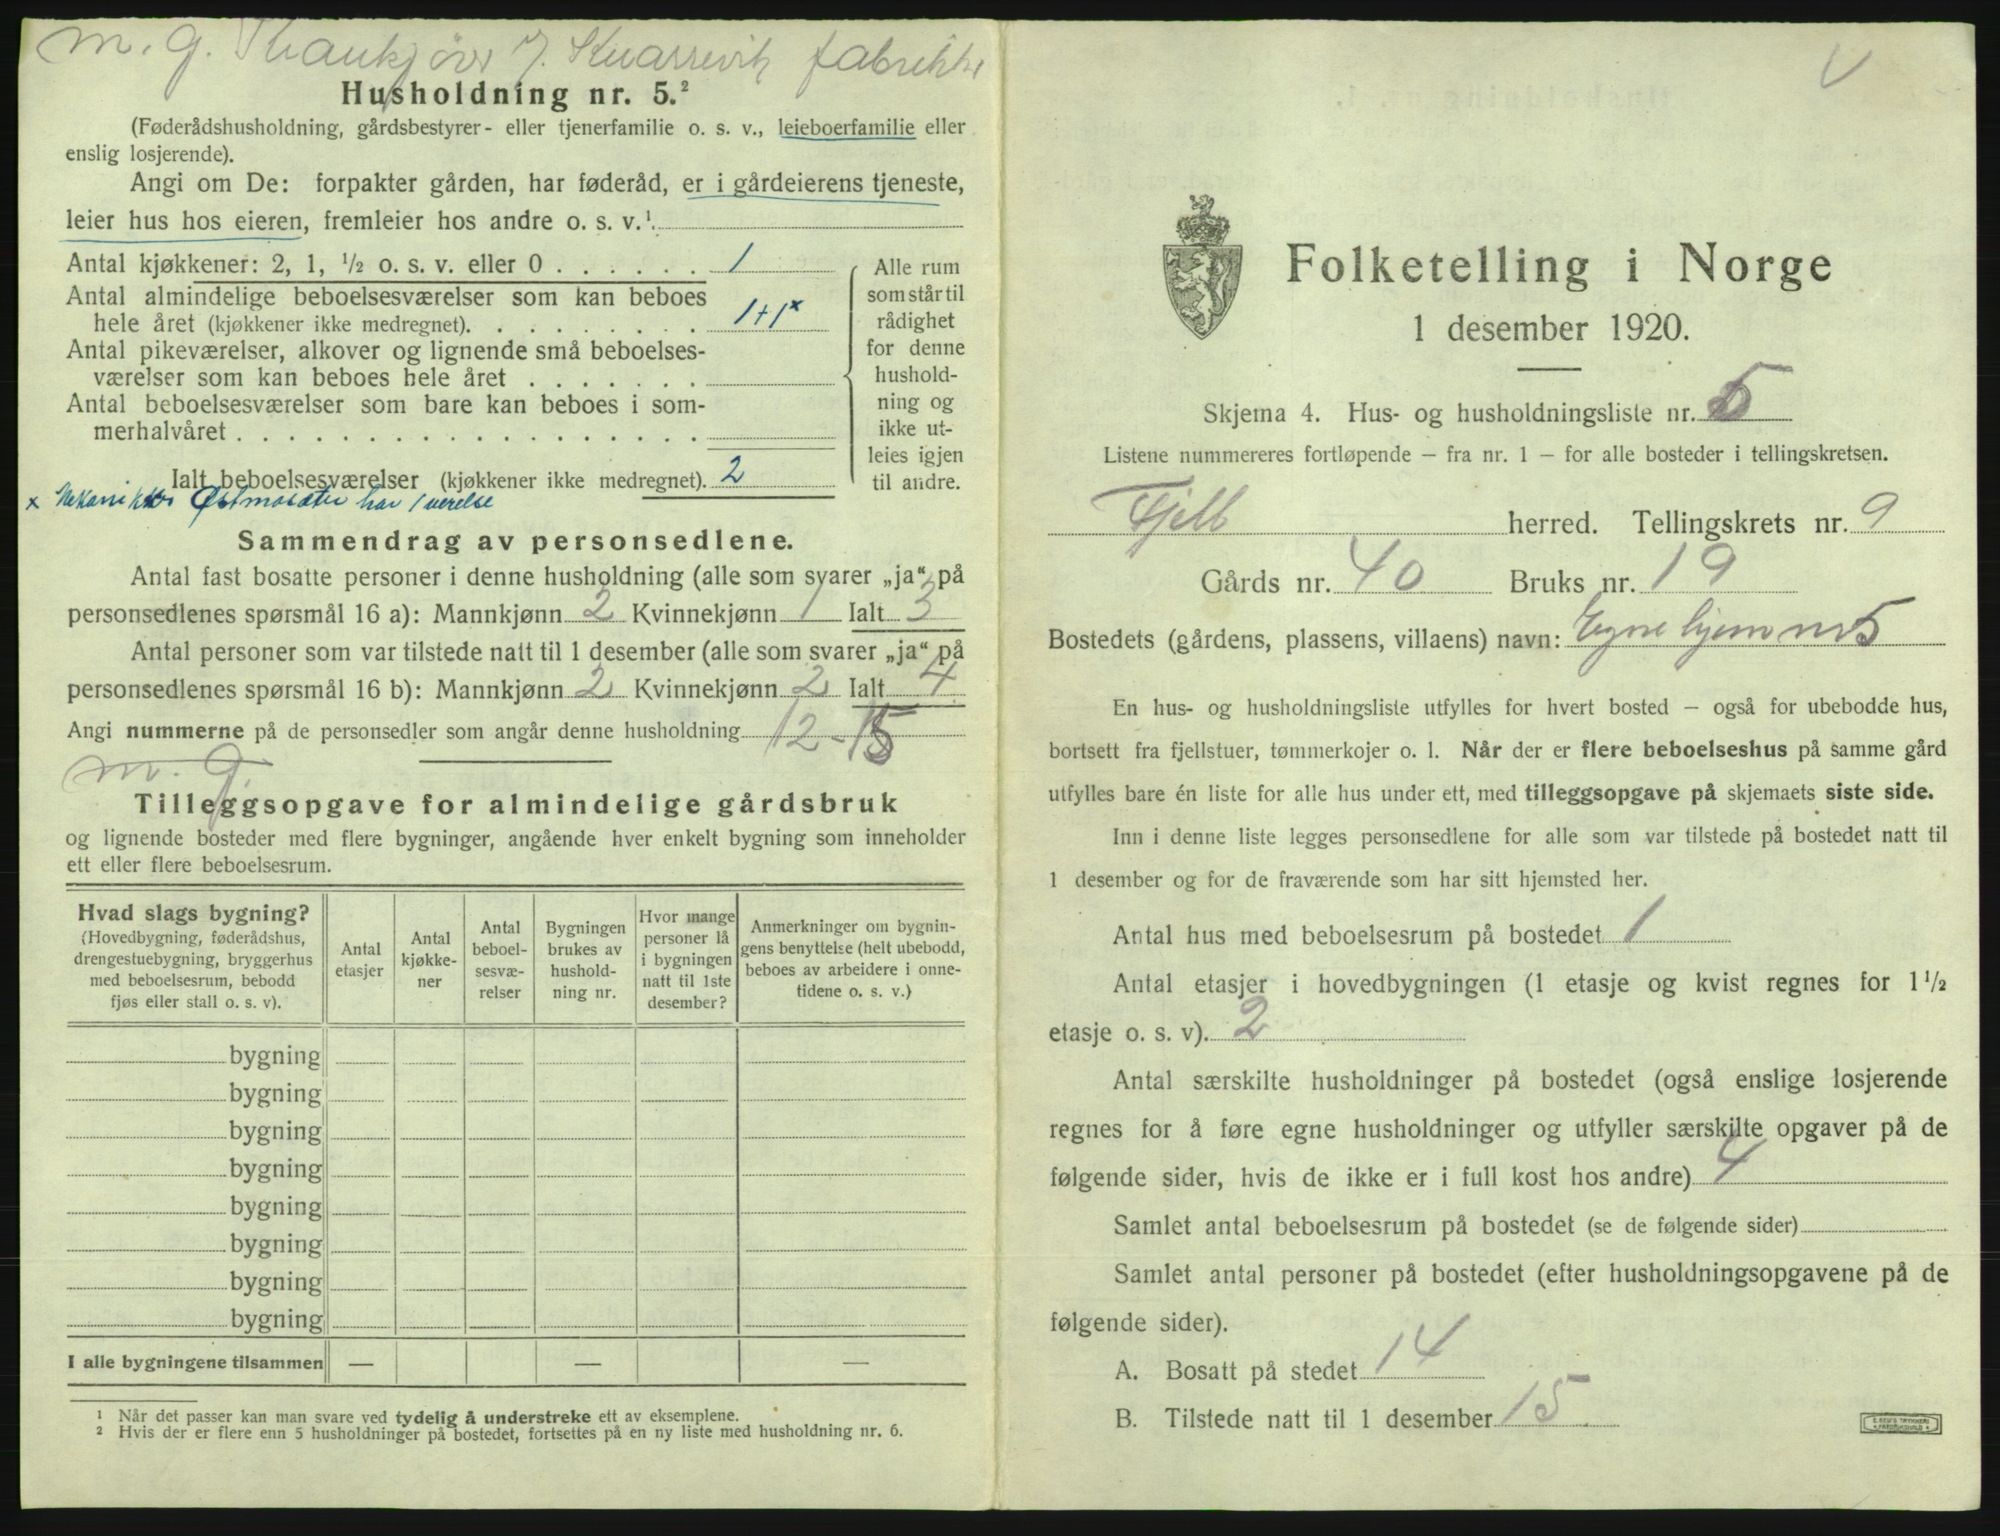 m. g. Skarrevik fabrikke
Husholdning nr. 5.²
(Føderådshusholdning, gårdsbestyrer- eller tjenerfamilie o. s. v., leieboerfamilie eller
enslig losjerende).
Angi om De: forpakter gården, har føderåd, er i gårdeierens tjeneste,
leier hus hos eieren, fremleier hos andre o. s. v.¹
Antal kjøkkener: 2, 1, ½ o. s. v. eller 0 . . . . . . 1
Antal almindelige beboelsesværelser som kan beboes
hele året (kjøkkener ikke medregnet). . . . . . . . . 1+1×
Antal pikeværelser, alkover og lignende små beboelses-
værelser som kan beboes hele året . . . . . . .
Antal beboelsesværelser som bare kan beboes i som-
merhalvåret . . . . . . . . . . . . . . . . . .
Ialt beboelsesværelser (kjøkkener ikke medregnet). 2
Alle rum
som står til
rådighet
for denne
hushold-
ning og
ikke ut-
leies igjen
til andre.
× Østmosæter har 1 værelse
Sammendrag av personsedlene.
Antal fast bosatte personer i denne husholdning (alle som svarer „ja“ på
personsedlenes spørsmål 16 a): Mannkjønn 2 Kvinnekjønn 1 Ialt 3
Antal personer som var tilstede natt til 1 desember (alle som svarer „ja“ på
personsedlenes spørsmål 16 b): Mannkjønn 2 Kvinnekjønn 2 Ialt 4
Angi nummerne på de personsedler som angår denne husholdning 12-15
m. g.
Tilleggsopgave for almindelige gårdsbruk
og lignende bosteder med flere bygninger, angående hver enkelt bygning som inneholder
ett eller flere beboelsesrum.
Hvad slags bygning?
(Hovedbygning, føderådshus,
drengestuebygning, bryggerhus
med beboelsesrum, bebodd
fjøs eller stall o. s. v).
Antal
etasjer
Antal
kjøkke-
ner
Antal
beboel-
sesvæ-
relser
Bygningen
brukes av
hushold-
ning nr.
Hvor mange
personer lå
i bygningen
natt til 1ste
desember?
Anmerkninger om bygnin-
gens benyttelse (helt ubebodd,
beboes av arbeidere i onne-
tidene o. s. v.)
bygning
bygning
bygning
bygning
bygning
bygning
bygning
bygning
I alle bygningene tilsammen — — —
¹ Når det passer kan man svare ved tydelig å understreke ett av eksemplene.
² Hvis der er flere enn 5 husholdninger på bostedet, fortsettes på en ny liste med husholdning nr. 6.
Folketelling i Norge
1 desember 1920.
Skjema 4. Hus- og husholdningsliste nr. 5
Listene nummereres fortløpende – fra nr. 1 – for alle bosteder i tellingskretsen.
Fjell herred. Tellingskrets nr. 9
Gårds nr. 40 Bruks nr. 19
Bostedets (gårdens, plassens, villaens) navn: Egne hjem nr 5
En hus- og husholdningsliste utfylles for hvert bosted – også for ubebodde hus,
bortsett fra fjellstuer, tømmerkojer o. l. Når der er flere beboelseshus på samme gård
utfylles bare én liste for alle hus under ett, med tilleggsopgave på skjemaets siste side.
Inn i denne liste legges personsedlene for alle som var tilstede på bostedet natt til
1 desember og for de fraværende som har sitt hjemsted her.
Antal hus med beboelsesrum på bostedet 1
Antal etasjer i hovedbygningen (1 etasje og kvist regnes for 1½
etasje o. s. v). 2
Antal særskilte husholdninger på bostedet (også enslige losjerende
regnes for å føre egne husholdninger og utfyller særskilte opgaver på de
følgende sider, hvis de ikke er i full kost hos andre) 4
Samlet antal beboelsesrum på bostedet (se de følgende sider)
Samlet antal personer på bostedet (efter husholdningsopgavene på de
følgende sider).
A. Bosatt på stedet 14
B. Tilstede natt til 1 desember 15